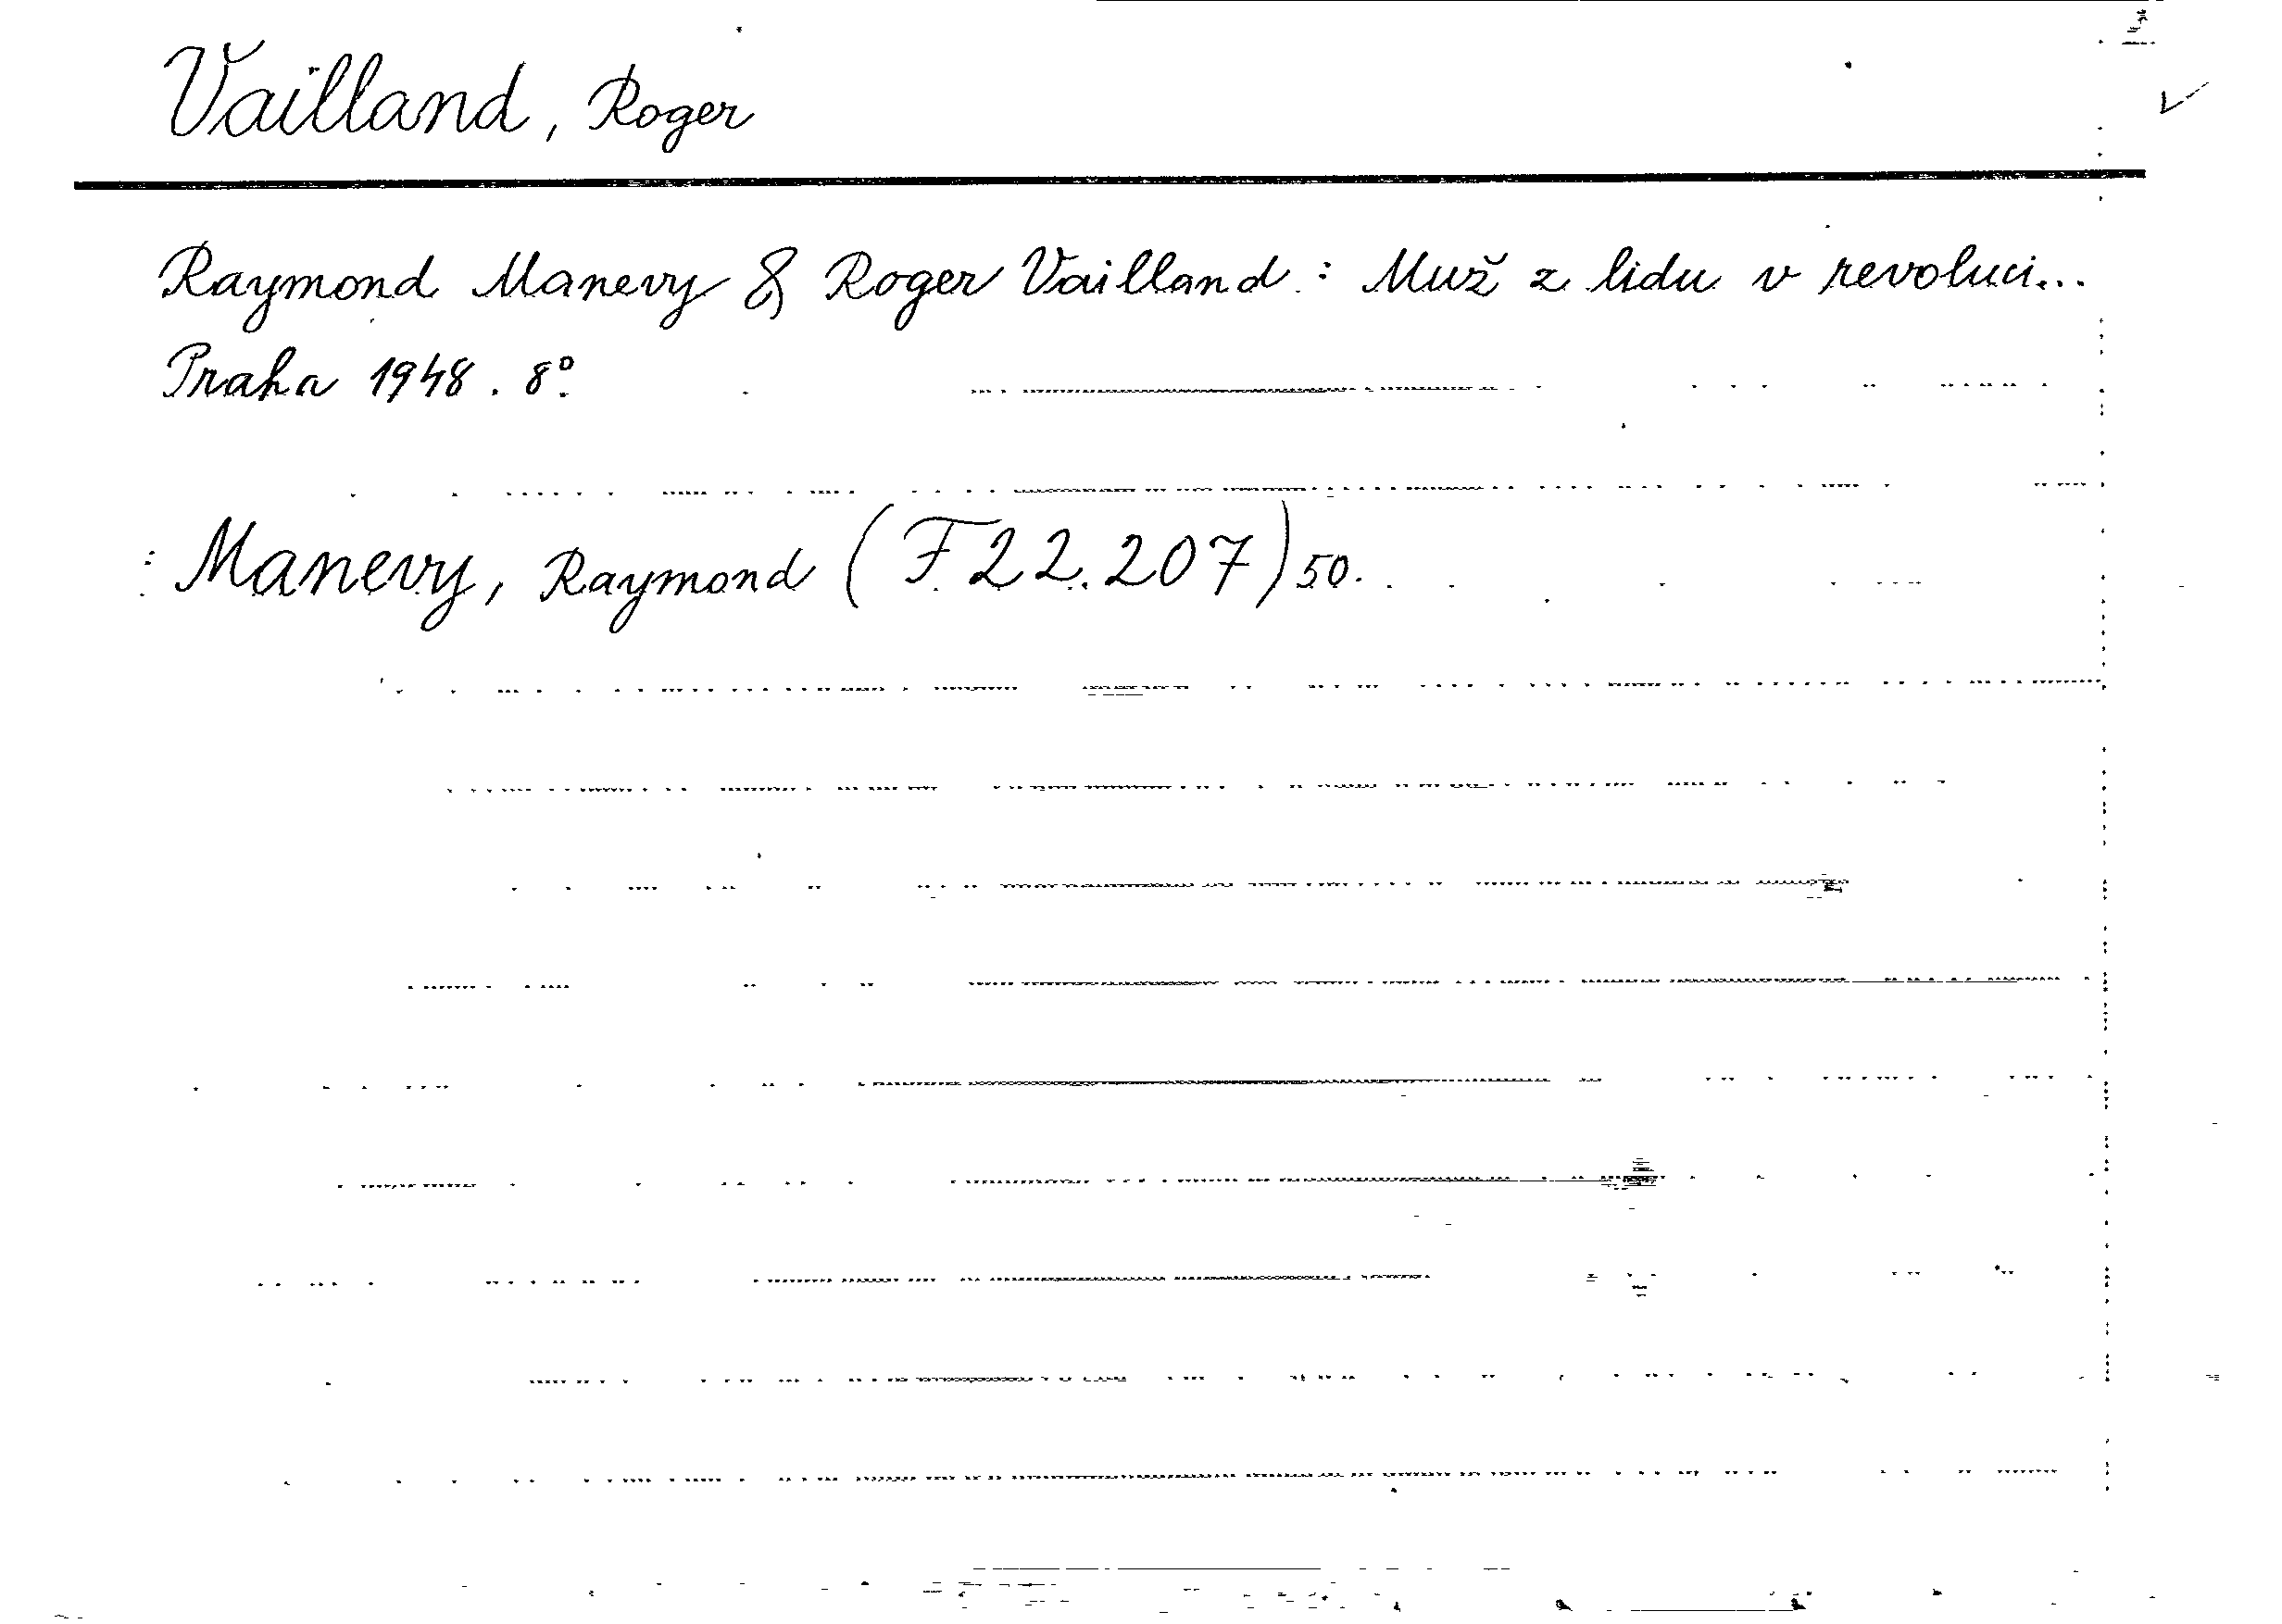 Vailland, Roger
Raymond Manevy & Roger Vailland: Muž z lidu v revoluci...
Praha 1948. 8°.
: Manevy, Raymond (F 22.207) 50.